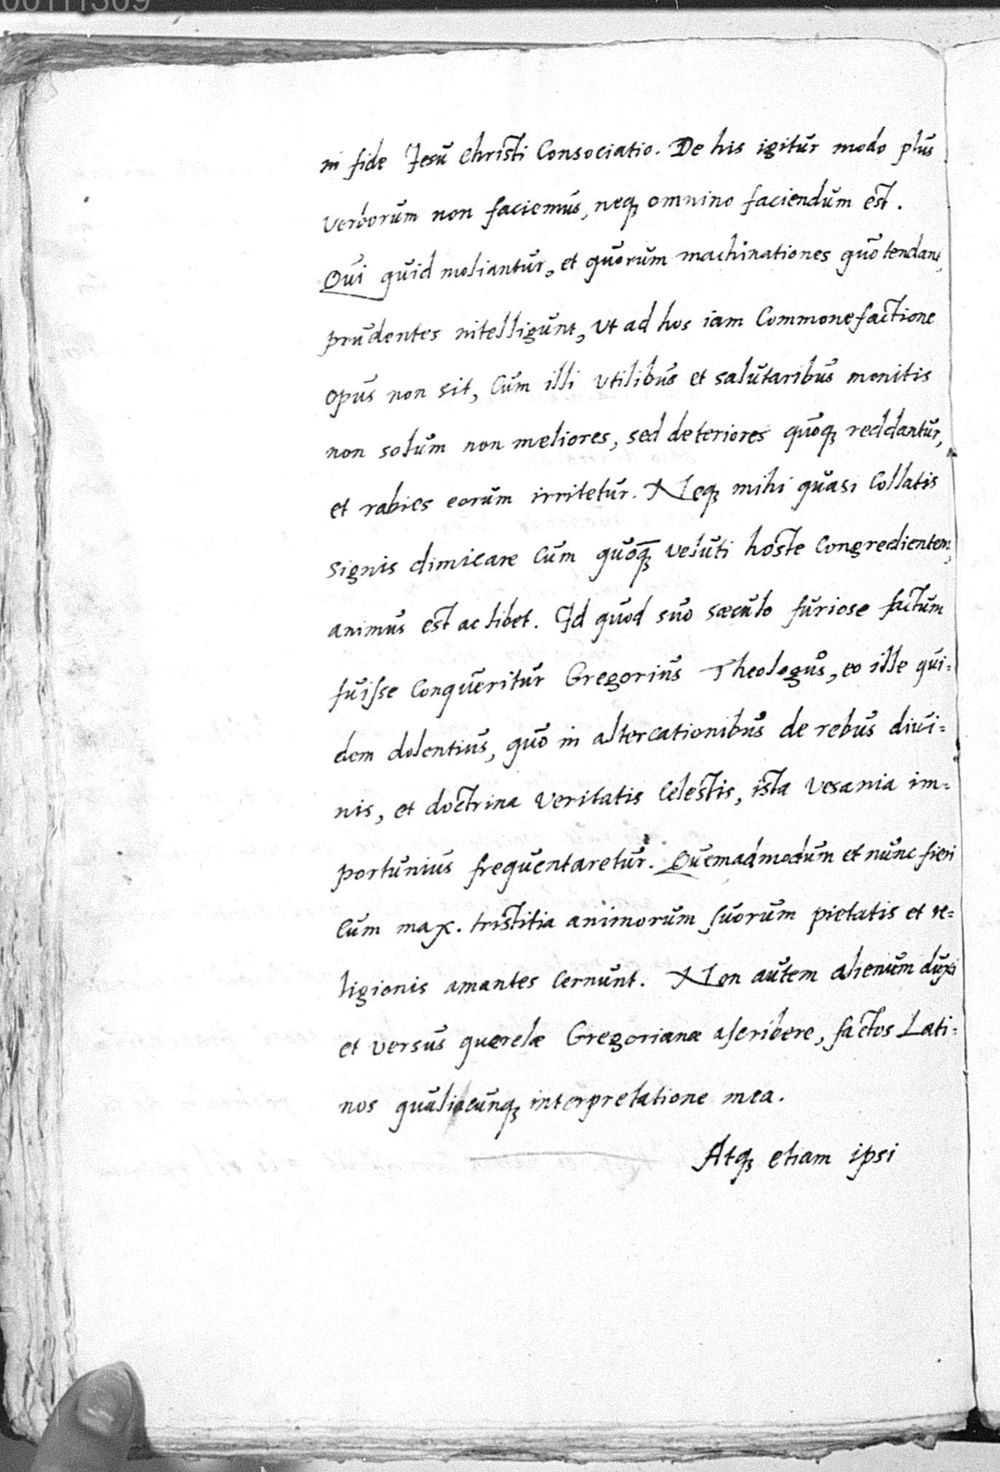 00111309
in fide Jesu Christi Consociatio. De his igitur modo plus
verborum non faciemus, neq; omnino faciendum est.
Qui quid moliantur, et quorum machinationes quo tendant,
prudentes intelligunt, Ut ad hos iam Commonefactione
opus non sit, Cum illi utilibus et salutaribus monitis
non solum non meliores, sed deteriores quoq; reddantur,
et rabies eorum irritetur. Neq; mihi quasi Collatis
signis dimicare Cum quoq; veluti hoste Congredientem,
animus est ac libet. Id quod suo sæculo furiose factum
fuisse Conqueritur Gregorius Theologus, eo ille qui-
dem dolentius, quo in altercationibus de rebus divi-
nis, et doctrina Veritatis Celestis, ista Vesania im-
portunius frequentaretur. Quemadmodum et nunc fieri
Cum max. tristitia animorum suorum pietatis et re-
ligionis amantes Cernunt. Non autem alienum duxi
et versus querelæ Gregorianæ ascribere, factos Lati-
nos qualicunq; interpretatione mea.
Atq; etiam ipsi